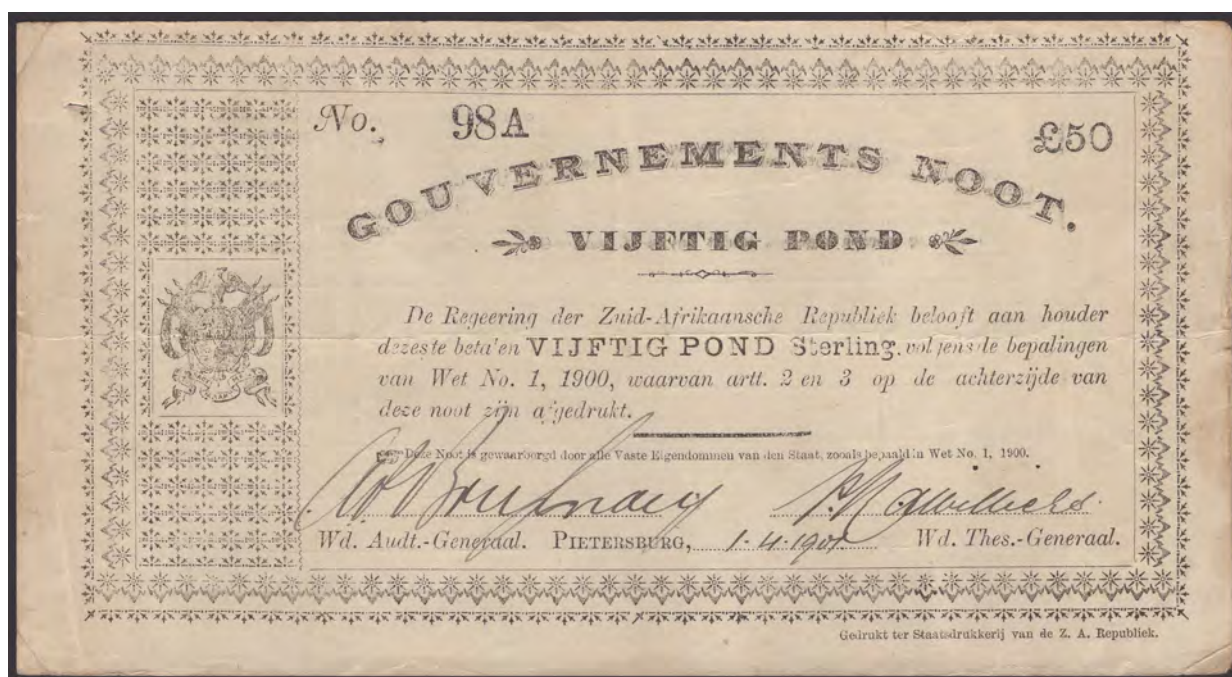 No. 98A £50
GOUVERNEMENTS NOOT.
VIJFTIG POND
De Regeering der Zuid-Afrikaansche Republiek belooft aan houder
dezes te beta'en VIJFTIG POND Sterling. voljens de bepalingen
van Wet No. 1, 1900, waarvan artt. 2 en 3 op de achterzijde van
deze noot zijn afgedrukt.
Deze Noot is gewaarborgd door alle Vaste Eigendommen van den Staat, zooals bepaald in Wet No. 1, 1900.
Wd. Audt.-Generaal. PIETERSBURG, 1-4-1901 Wd. Thes.-Generaal.
Gedrukt ter Staatsdrukkerij van de Z. A. Republiek.